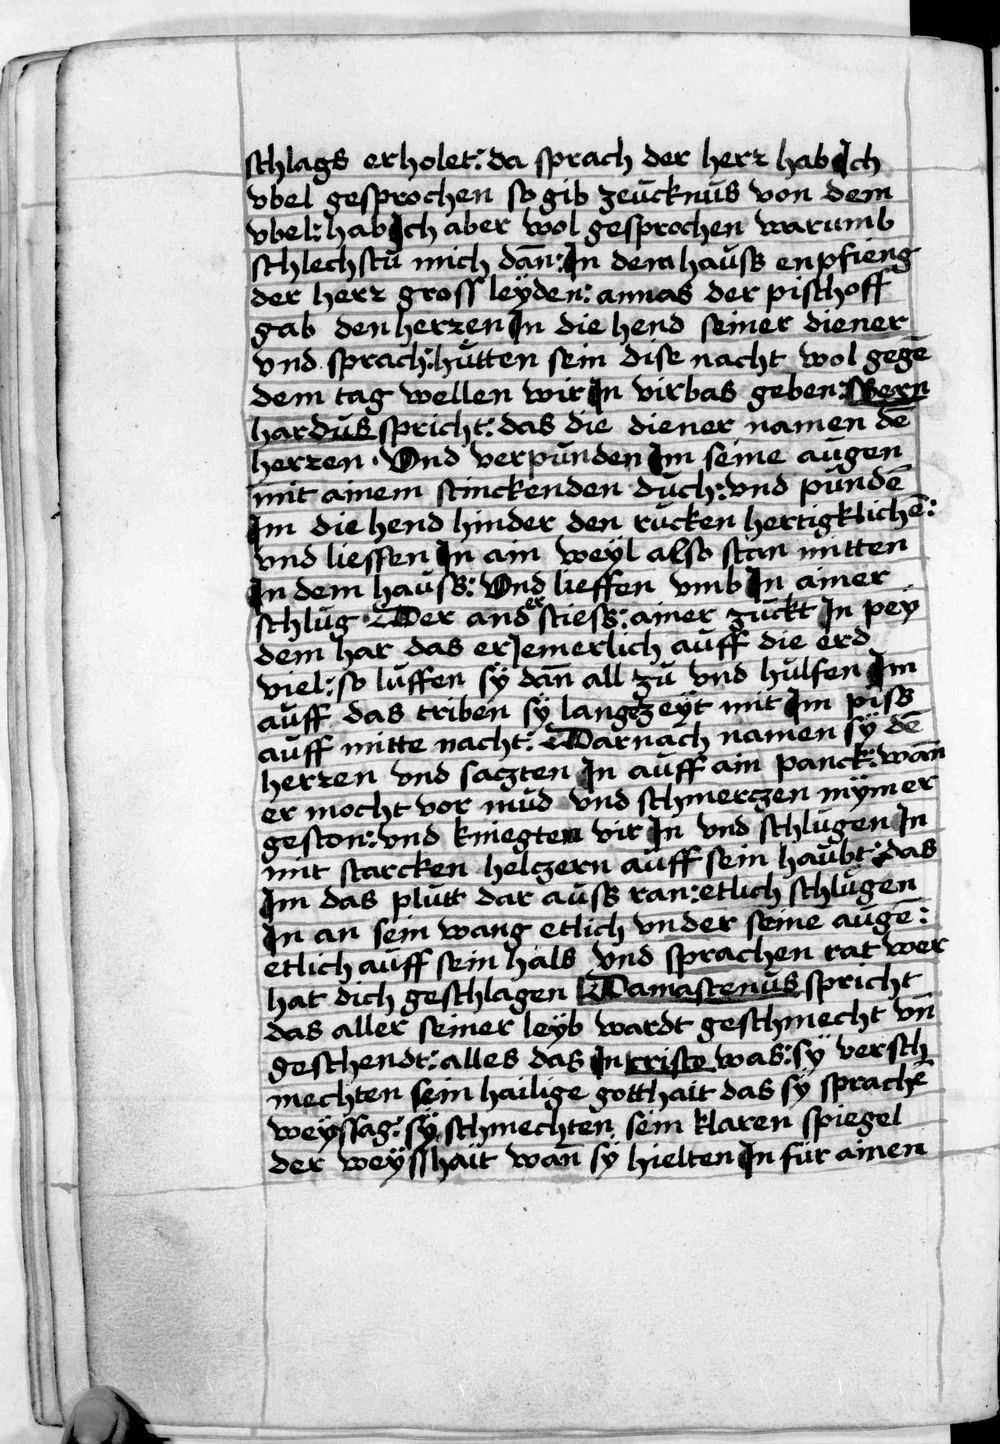 schlags erholet: da sprach der herr hab Ich
vbel gesprochen so gib zeucknus von dem
vbel: hab Ich aber wol gesprochen warumb
schlechstu mich dan̄: In dem hauss enpfieng
der herr gross leÿden: annas der pischoff
gab den herren In die hend seiner diener
vnd sprach: hutten sein dise nacht wol gegē
dem tag wellen wir In virbas geben: Bern
hardus spricht: das die diener namen dē
herren. Vnd verpunden Im seine augen
mit ainem stinckenden duch: vnd pundē
Im die hend hinder den rucken hertigklichē:
vnd liessen In ain weyl also stan mitten
In dem hauss: Vnd lieffen vmb In ainer
schlug Der ander stiess: ainer zuckt In peÿ
dem har das er Jemerlich auff die erd
viel: so luffen sÿ dan̄ all zu vnd hulfen Im
auff das triben sÿ lange zeÿt mit Im piss
auff mitte nacht: Darnach namen sÿ dē
herren vnd saczten In auff ain panck: wan̄
er mocht vor mud vnd schmerczen nÿmer
geston: vnd kniegten vir In vnd schlugen In
mit starcken helczern auff sein haubt: das
Im das plutt dar auss ran: etlich schlugen
In an sein wang etlich vnder seine augē:
etlich auff sein hals vnd sprachen rat wer
hat dich geschlagen Damascenus spricht
das aller seiner leÿb wardt geschmecht vn̄
geschendt: alles das In cristo was: sÿ versch
mechten sein hailige gotthait das sÿ sprachē
weÿssag: sÿ schmechten sein klaren spiegel
der weÿsshait wan̄ sÿ hielten In fur ainen